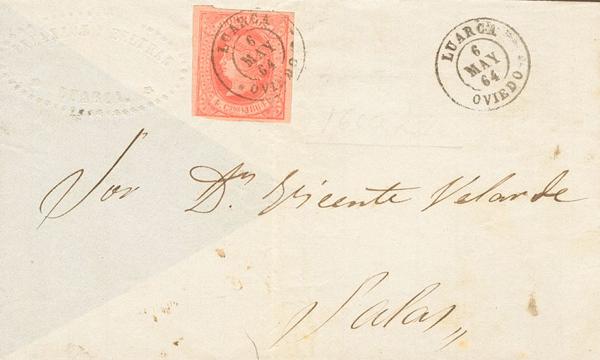 LUARCA
6
MAY
64
OVIEDO
LUARCA
6
MAY
64
OVIEDO
LUARCA
Sor Dn Vicente Velarde
Salas